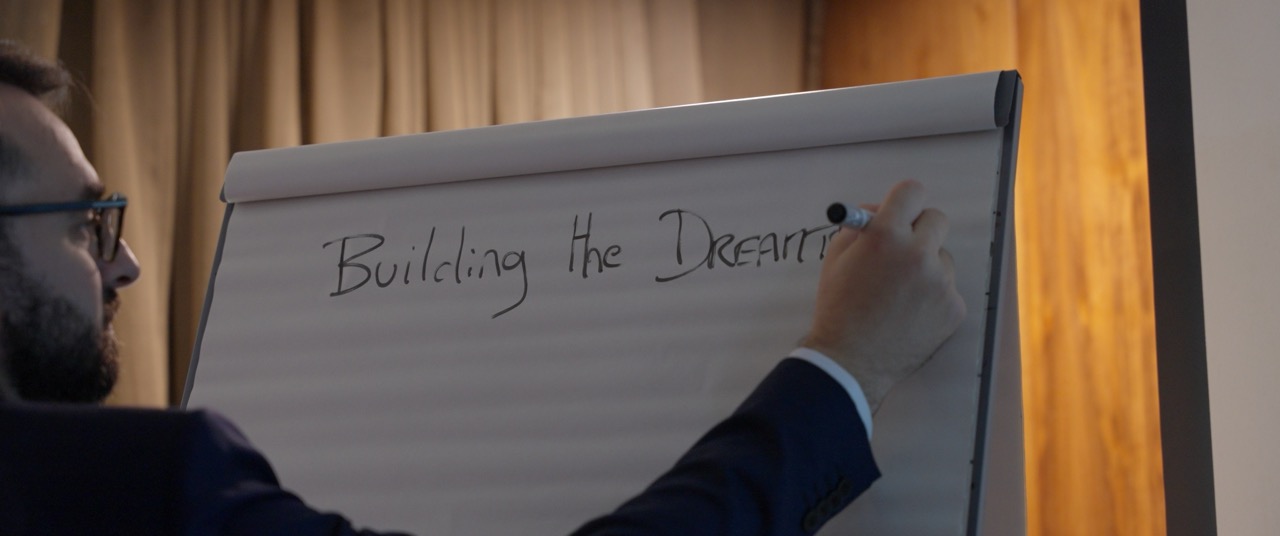 Building the DREAM